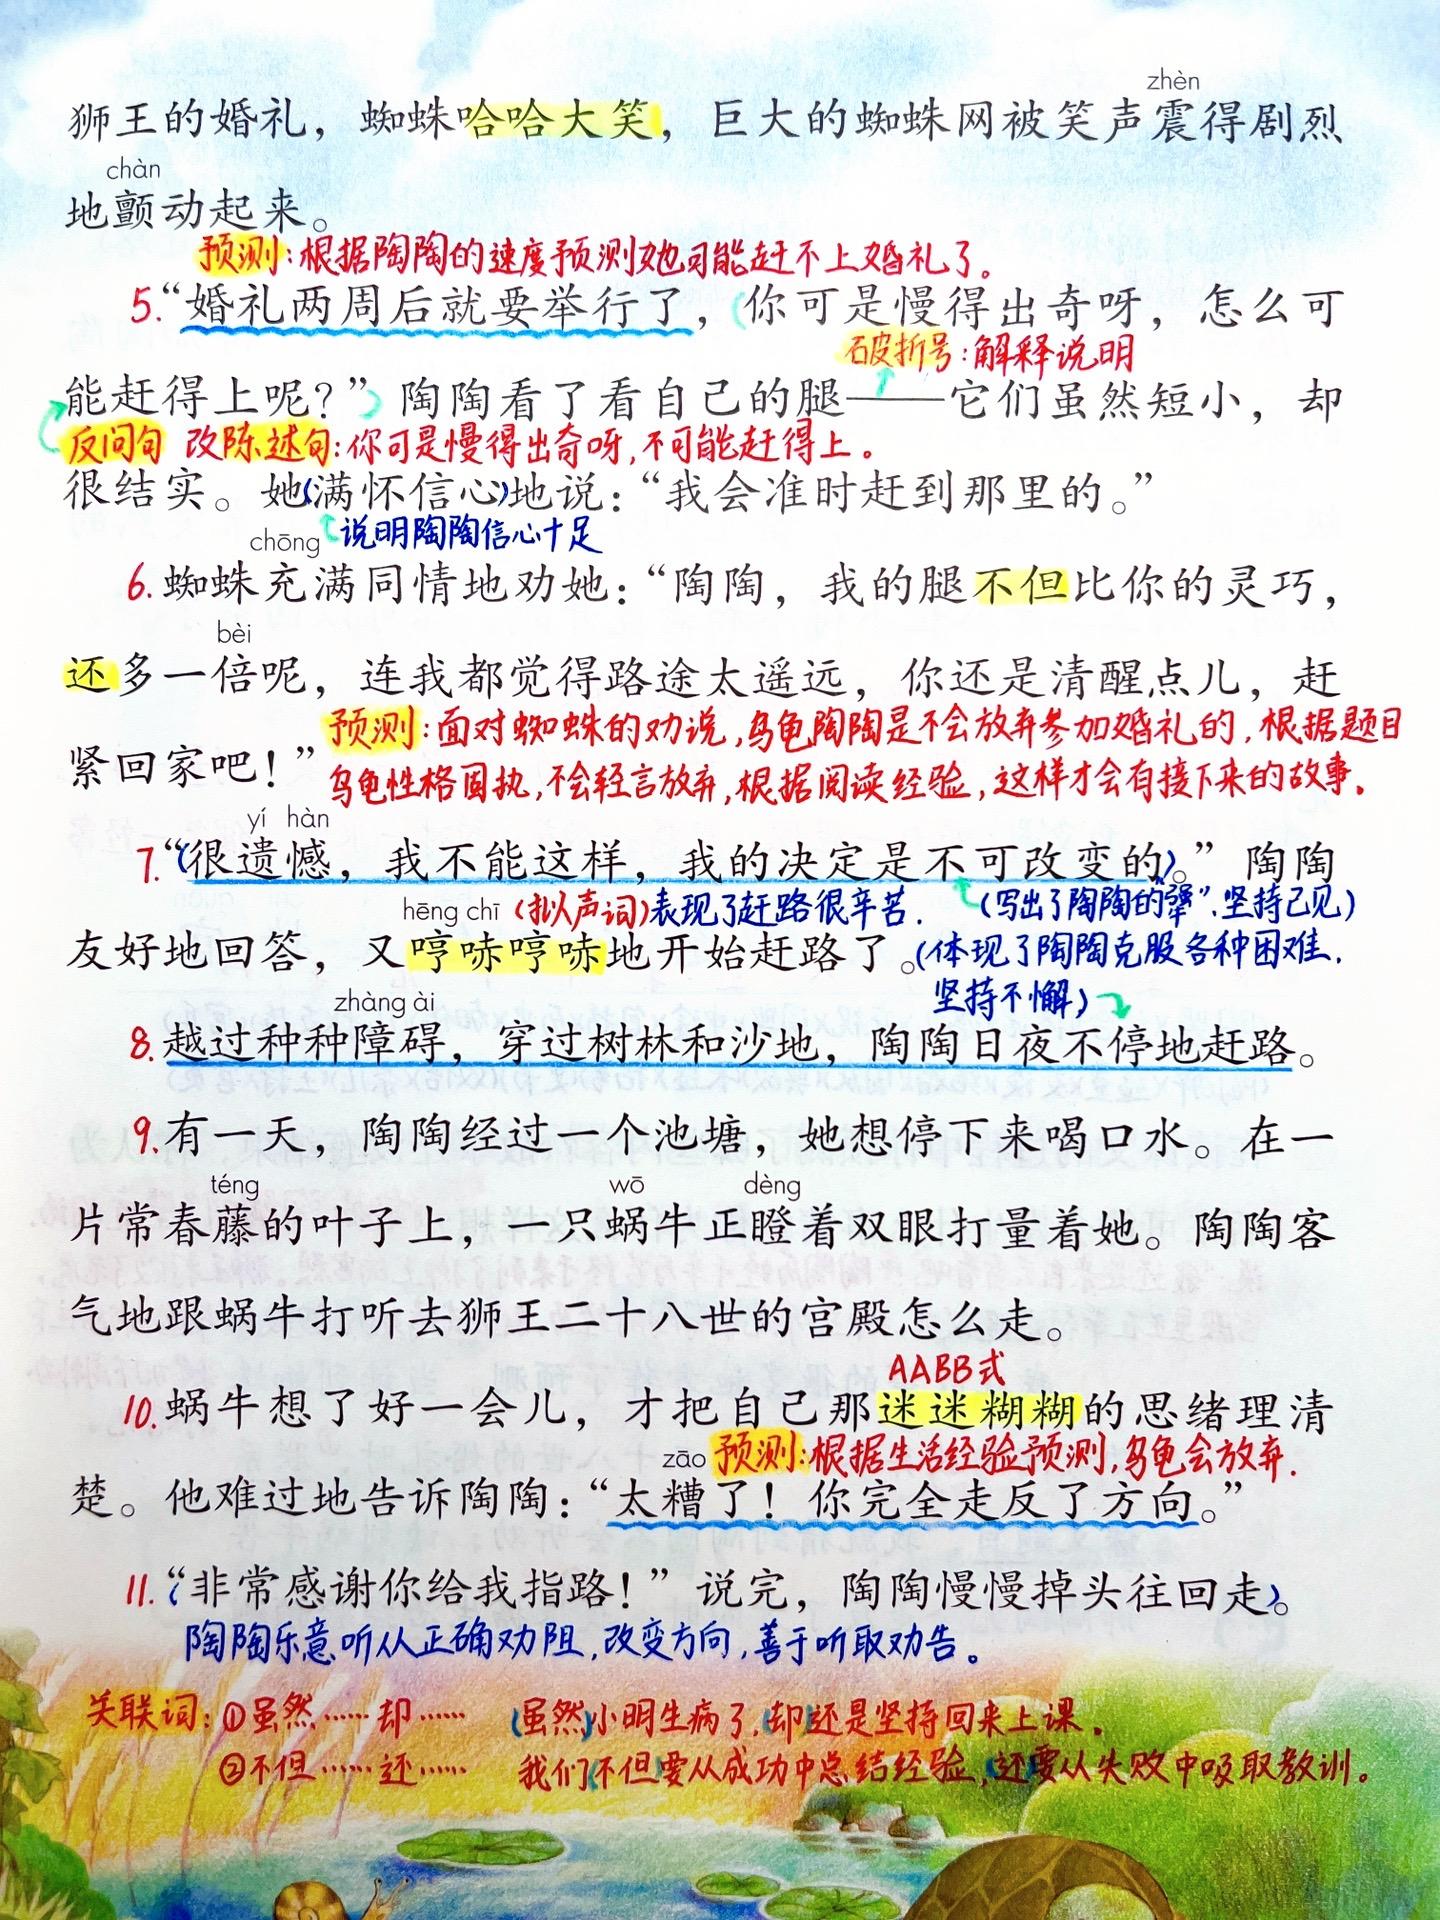 zhèn
狮王的婚礼，蜘蛛哈哈大笑，巨大的蜘蛛网被笑声震得剧烈
chàn
地颤动起来。
预测：根据陶陶的速度预测她可能赶不上婚礼了。
5.“婚礼两周后就要举行了，（你可是慢得出奇呀，怎么可
破折号：解释说明
能赶得上呢？”）陶陶看了看自己的腿——它们虽然短小，却
反问句 改陈述句：你可是慢得出奇呀，不可能赶得上。
很结实。她（满怀信心）地说：“我会准时赶到那里的。”
说明陶陶信心十足
chōng
6.蜘蛛充满同情地劝她：“陶陶，我的腿不但比你的灵巧，
bèi
还多一倍呢，连我都觉得路途太遥远，你还是清醒点儿，赶
预测：面对蜘蛛的劝说，乌龟陶陶是不会放弃参加婚礼的，根据题目
紧回家吧！”
乌龟性格固执，不会轻言放弃，根据阅读经验，这样才会有接下来的故事。
yí hàn
7.“（很遗憾，我不能这样，我的决定是不可改变的）。”陶陶
hēng chī（拟人声词）表现了赶路很辛苦.（写出了陶陶的“犟”、坚持己见）
友好地回答，又哼哧哼哧地开始赶路了。（体现了陶陶克服各种困难，
坚持不懈）
zhàng ài
8.越过种种障碍，穿过树林和沙地，陶陶日夜不停地赶路。
9.有一天，陶陶经过一个池塘，她想停下来喝口水。在一
téng wō dèng
片常春藤的叶子上，一只蜗牛正瞪着双眼打量着她。陶陶客
气地跟蜗牛打听去狮王二十八世的宫殿怎么走。
AABB式
10.蜗牛想了好一会儿，才把自己那迷迷糊糊的思绪理清
zāo 预测：根据生活经验预测，乌龟会放弃.
楚。他难过地告诉陶陶：“太糟了！你完全走反了方向。”
11.（“非常感谢你给我指路！”说完，陶陶慢慢掉头往回走）。
陶陶乐意听从正确劝阻，改变方向，善于听取劝告。
关联词：①虽然……却…… （虽然）小明生病了，（却）还是坚持回来上课.
②不但……还…… 我们（不但）要从成功中总结经验，（还）要从失败中吸取教训。